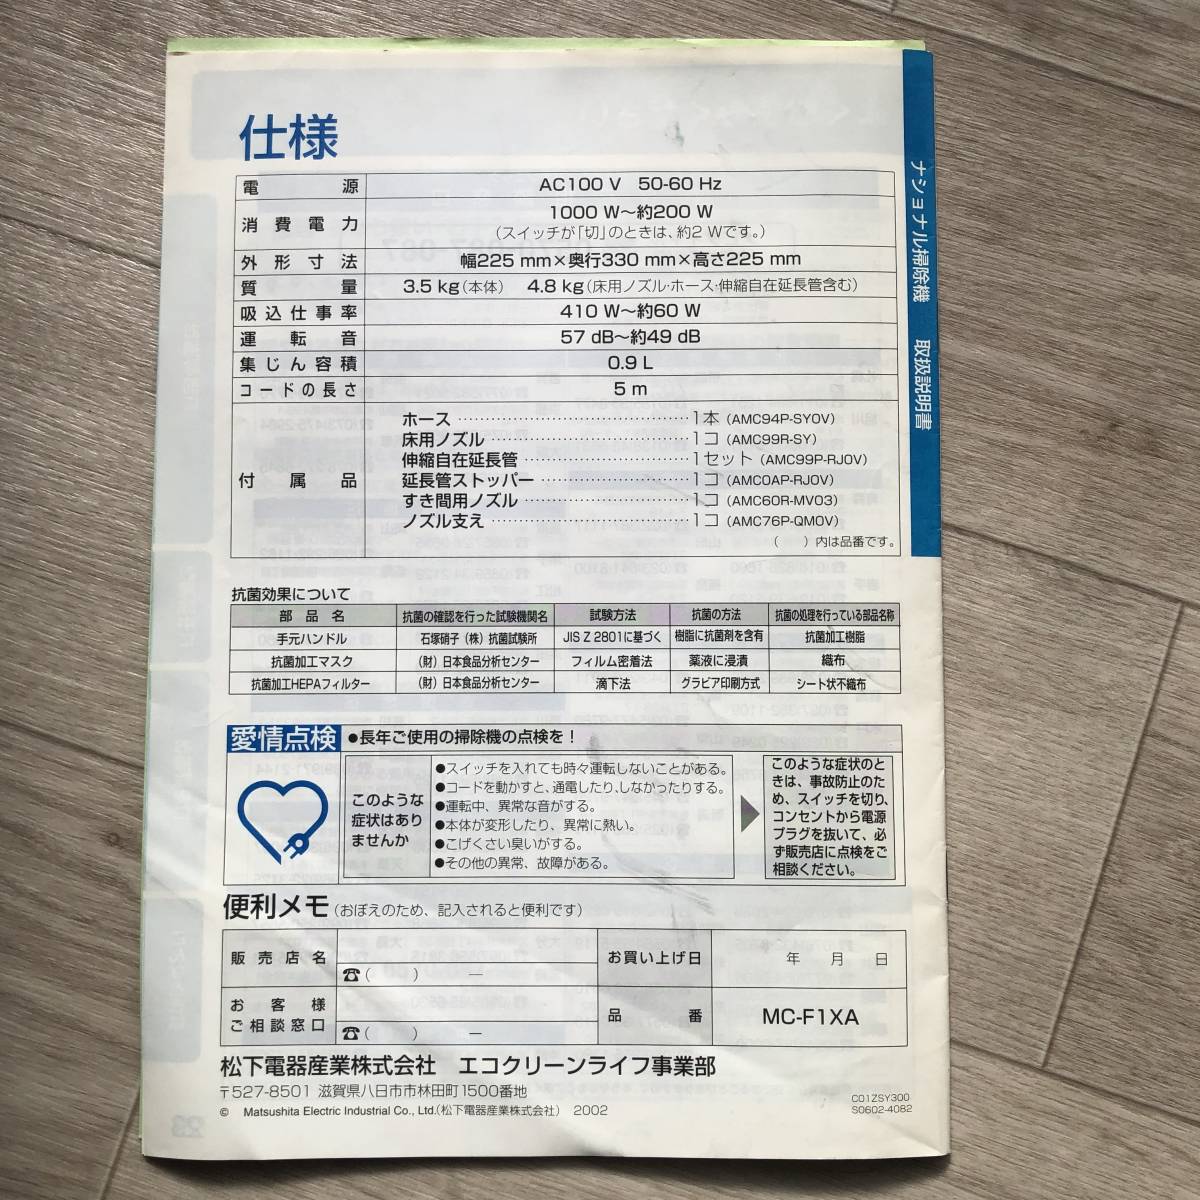 仕様
電源 AC100 V 50-60 Hz
消費電力 1000 W〜約200 W
(スイッチが「切」のときは、約2 Wです。)
外形寸法 幅225 mm×奥行330 mm×高さ225 mm
質量 3.5 kg(本体) 4.8 kg(床用ノズル・ホース・伸縮自在延長管含む)
吸込仕事率 410 W〜約60 W
運転音 57 dB〜約49 dB
集じん容積 0.9 L
コードの長さ 5 m
付属品
ホース 1本 (AMC94P-SY0V)
床用ノズル 1コ (AMC99R-SY)
伸縮自在延長管 1セット (AMC99P-RJ0V)
延長管ストッパー 1コ (AMC0AP-RJ0V)
すき間用ノズル 1コ (AMC60R-MV03)
ノズル支え 1コ (AMC76P-QM0V)
( )内は品番です。
抗菌効果について
部品名 抗菌の確認を行った試験機関名 試験方法 抗菌の方法 抗菌の処理を行っている部品名称
手元ハンドル 石塚硝子(株)抗菌試験所 JIS Z 2801に基づく 樹脂に抗菌剤を含有 抗菌加工樹脂
抗菌加工マスク (財)日本食品分析センター フィルム密着法 薬液に浸漬 織布
抗菌加工HEPAフィルター (財)日本食品分析センター 滴下法 グラビア印刷方式 シート状不織布
愛情点検 ●長年ご使用の掃除機の点検を!
このような
症状はあり
ませんか
●スイッチを入れても時々運転しないことがある。
●コードを動かすと、通電したり、しなかったりする。
●運転中、異常な音がする。
●本体が変形したり、異常に熱い。
●こげくさい臭いがする。
●その他の異常、故障がある。
このような症状のと
きは、事故防止のた
め、スイッチを切り、
コンセントから電源
プラグを抜いて、必
ず販売店に点検をご
相談ください。
便利メモ (おぼえのため、記入されると便利です)
販売店名 ☎( ) — お買い上げ日 年 月 日
お客様
ご相談窓口 ☎( ) — 品番 MC-F1XA
松下電器産業株式会社 エコクリーンライフ事業部
〒527-8501 滋賀県八日市市林田町1500番地
© Matsushita Electric Industrial Co., Ltd.(松下電器産業株式会社) 2002
C01ZSY300
S0602-4082
ナショナル掃除機 取扱説明書